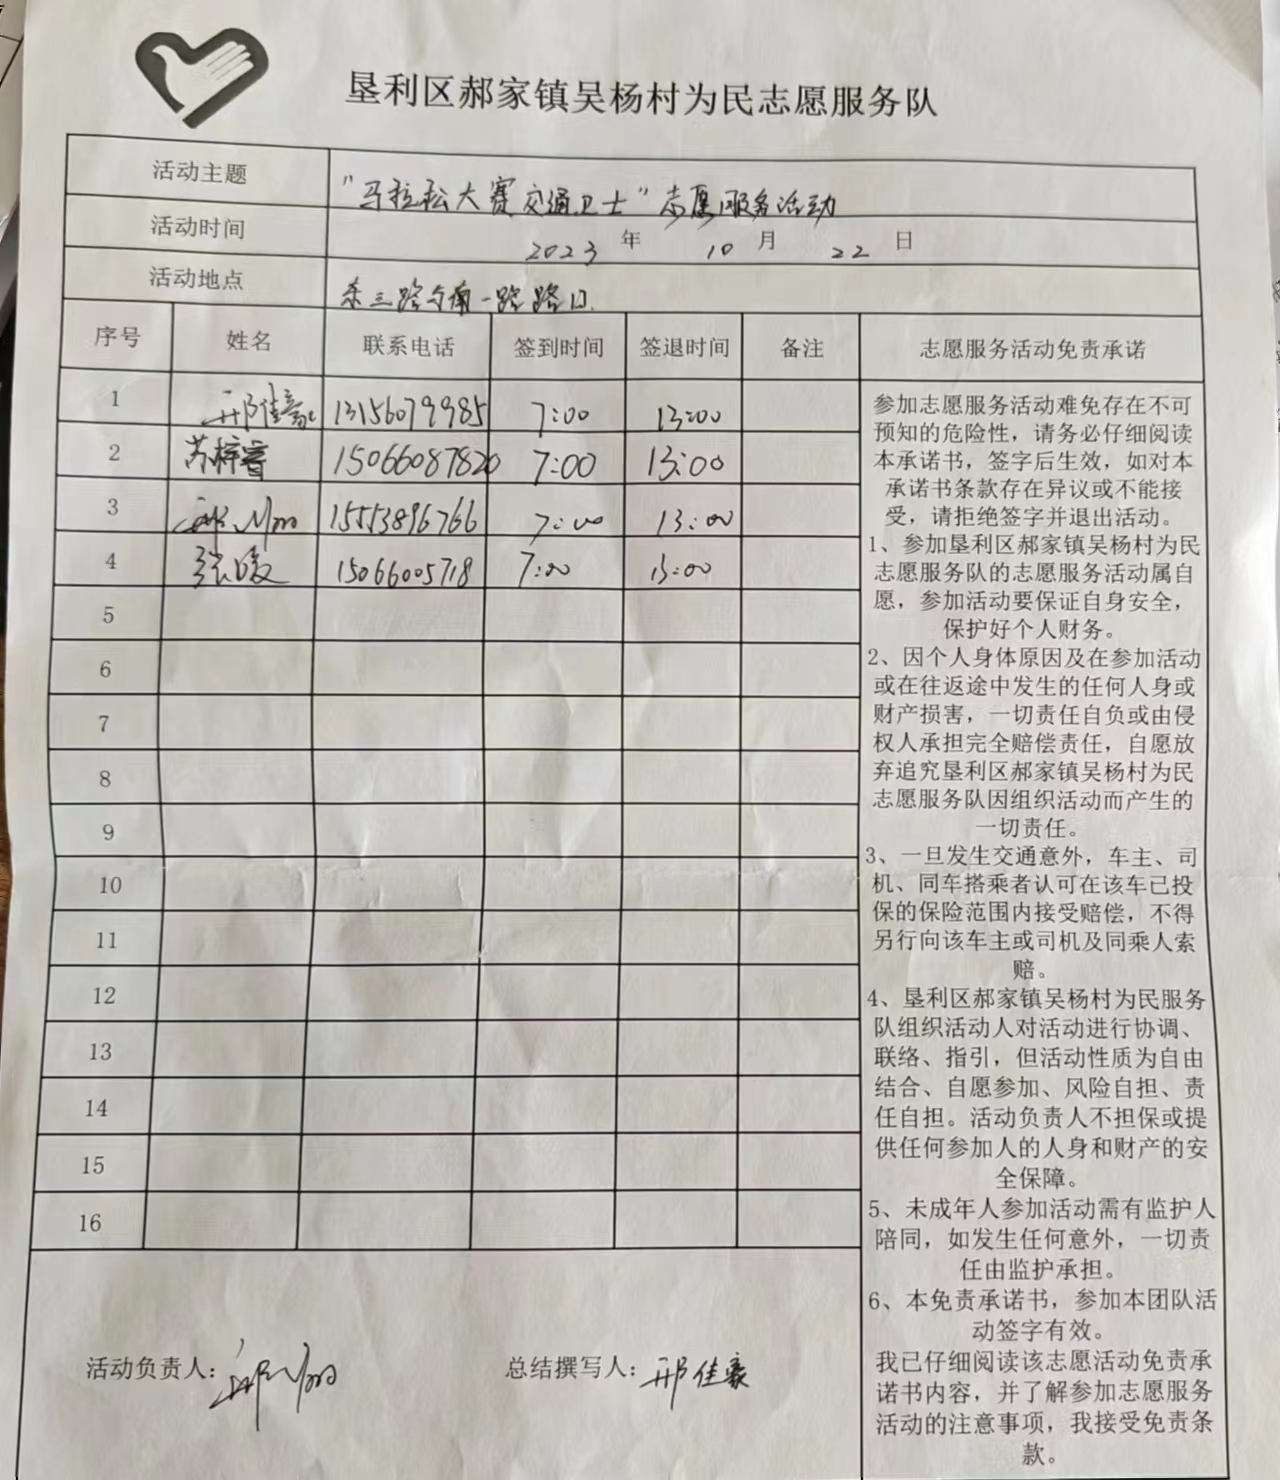 垦利区郝家镇吴杨村为民志愿服务队
活动主题 "马拉松大赛交通卫士"志愿服务活动
活动时间 2023 年 10 月 22 日
活动地点 东三路与南一路路口
序号 姓名 联系电话 签到时间 签退时间 备注 志愿服务活动免责承诺
1 邢佳豪 13156079985 7:00 13:00
2 苏梓睿 15066087820 7:00 13:00
3 15553896766 7:00 13:00
4 15066005718 7:00 13:00
5
6
7
8
9
10
11
12
13
14
15
16
参加志愿服务活动难免存在不可
预知的危险性，请务必仔细阅读
本承诺书，签字后生效，如对本
承诺书条款存在异议或不能接
受，请拒绝签字并退出活动。
1、参加垦利区郝家镇吴杨村为民
志愿服务队的志愿服务活动属自
愿，参加活动要保证自身安全，
保护好个人财务。
2、因个人身体原因及在参加活动
或在往返途中发生的任何人身或
财产损害，一切责任自负或由侵
权人承担完全赔偿责任，自愿放
弃追究垦利区郝家镇吴杨村为民
志愿服务队因组织活动而产生的
一切责任。
3、一旦发生交通意外，车主、司
机、同车搭乘者认可在该车已投
保的保险范围内接受赔偿，不得
另行向该车主或司机及同乘人索
赔。
4、垦利区郝家镇吴杨村为民服务
队组织活动人对活动进行协调、
联络、指引，但活动性质为自由
结合、自愿参加、风险自担、责
任自担。活动负责人不担保或提
供任何参加人的人身和财产的安
全保障。
5、未成年人参加活动需有监护人
陪同，如发生任何意外，一切责
任由监护承担。
6、本免责承诺书，参加本团队活
动签字有效。
我已仔细阅读该志愿活动免责承
诺书内容，并了解参加志愿服务
活动的注意事项，我接受免责条
款。
活动负责人：
总结撰写人：邢佳豪